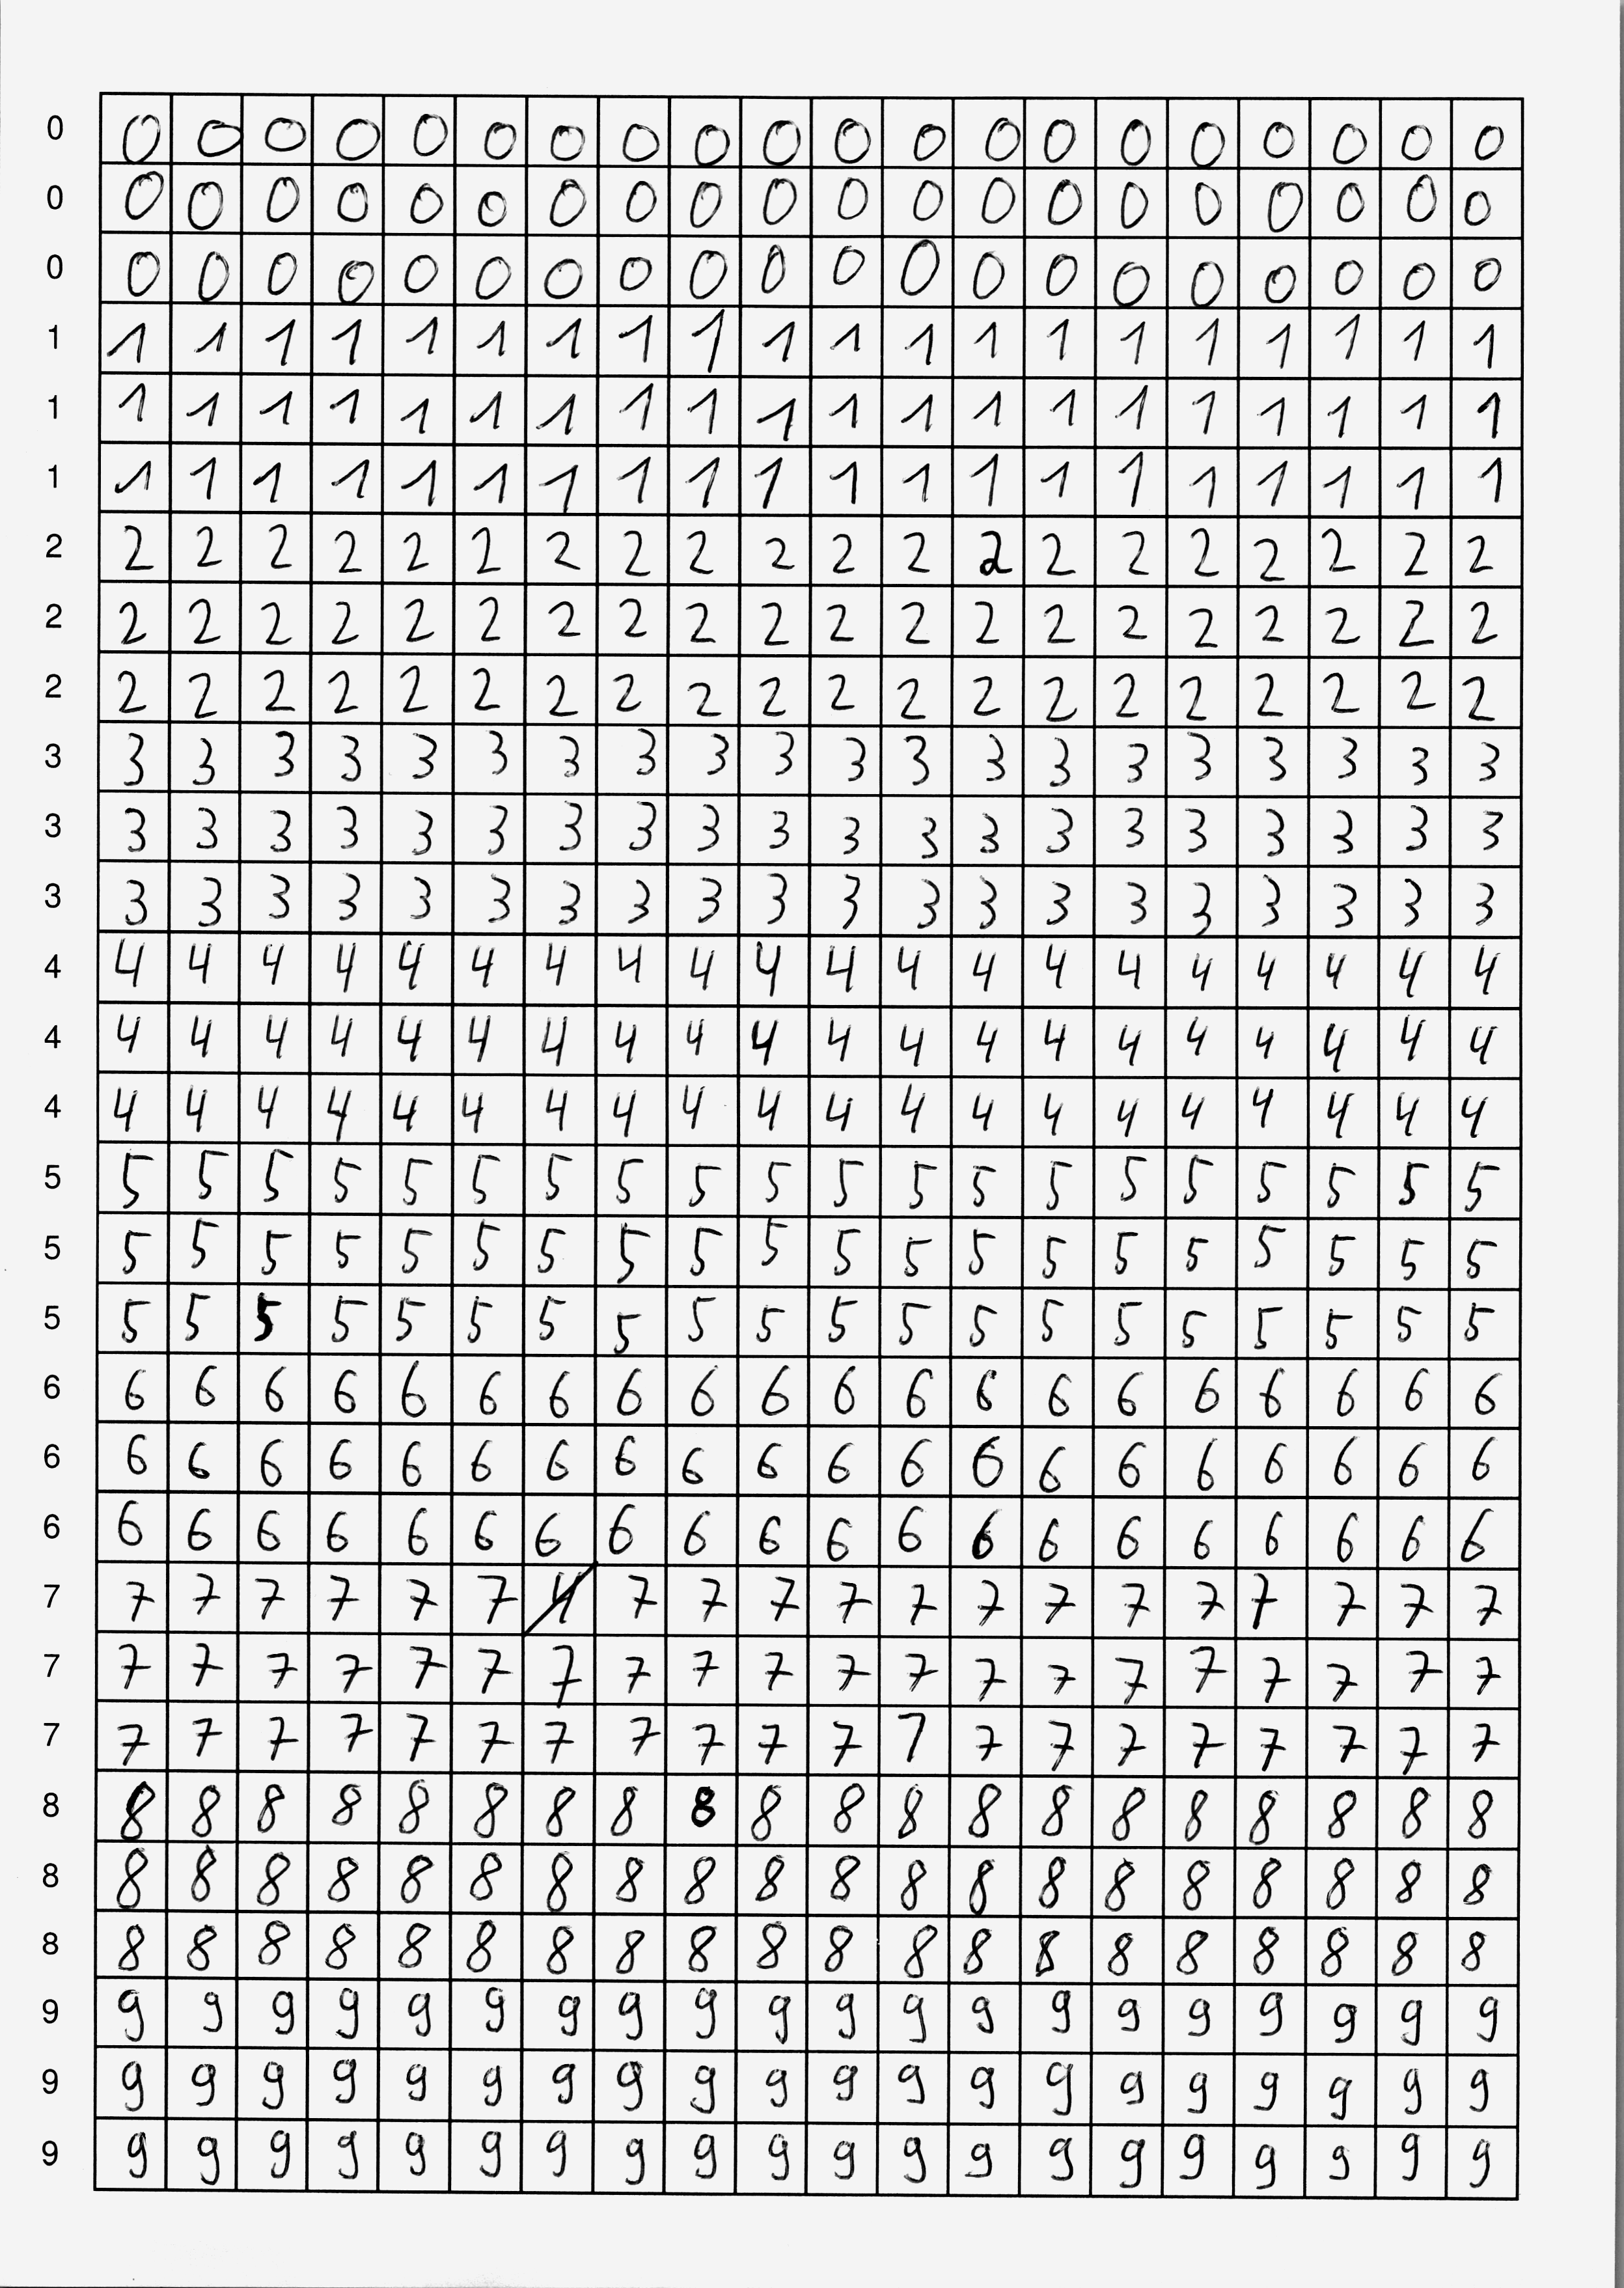 0 0 0 0 0 0 0 0 0 0 0 0 0 0 0 0 0 0 0 0 0
0 0 0 0 0 0 0 0 0 0 0 0 0 0 0 0 0 0 0 0 0
0 0 0 0 0 0 0 0 0 0 0 0 0 0 0 0 0 0 0 0 0
1 1 1 1 1 1 1 1 1 1 1 1 1 1 1 1 1 1 1 1 1
1 1 1 1 1 1 1 1 1 1 1 1 1 1 1 1 1 1 1 1 1
1 1 1 1 1 1 1 1 1 1 1 1 1 1 1 1 1 1 1 1 1
2 2 2 2 2 2 2 2 2 2 2 2 2 2 2 2 2 2 2 2 2
2 2 2 2 2 2 2 2 2 2 2 2 2 2 2 2 2 2 2 2 2
2 2 2 2 2 2 2 2 2 2 2 2 2 2 2 2 2 2 2 2 2
3 3 3 3 3 3 3 3 3 3 3 3 3 3 3 3 3 3 3 3 3
3 3 3 3 3 3 3 3 3 3 3 3 3 3 3 3 3 3 3 3 3
3 3 3 3 3 3 3 3 3 3 3 3 3 3 3 3 3 3 3 3 3
4 4 4 4 4 4 4 4 4 4 4 4 4 4 4 4 4 4 4 4 4
4 4 4 4 4 4 4 4 4 4 4 4 4 4 4 4 4 4 4 4 4
4 4 4 4 4 4 4 4 4 4 4 4 4 4 4 4 4 4 4 4 4
5 5 5 5 5 5 5 5 5 5 5 5 5 5 5 5 5 5 5 5 5
5 5 5 5 5 5 5 5 5 5 5 5 5 5 5 5 5 5 5 5 5
5 5 5 5 5 5 5 5 5 5 5 5 5 5 5 5 5 5 5 5 5
6 6 6 6 6 6 6 6 6 6 6 6 6 6 6 6 6 6 6 6 6
6 6 6 6 6 6 6 6 6 6 6 6 6 6 6 6 6 6 6 6 6
6 6 6 6 6 6 6 6 6 6 6 6 6 6 6 6 6 6 6 6 6
7 7 7 7 7 7 7 4 7 7 7 7 7 7 7 7 7 7 7 7 7
7 7 7 7 7 7 7 7 7 7 7 7 7 7 7 7 7 7 7 7 7
7 7 7 7 7 7 7 7 7 7 7 7 7 7 7 7 7 7 7 7 7
8 8 8 8 8 8 8 8 8 8 8 8 8 8 8 8 8 8 8 8 8
8 8 8 8 8 8 8 8 8 8 8 8 8 8 8 8 8 8 8 8 8
8 8 8 8 8 8 8 8 8 8 8 8 8 8 8 8 8 8 8 8 8
9 9 9 9 9 9 9 9 9 9 9 9 9 9 9 9 9 9 9 9 9
9 9 9 9 9 9 9 9 9 9 9 9 9 9 9 9 9 9 9 9 9
9 9 9 9 9 9 9 9 9 9 9 9 9 9 9 9 9 9 9 9 9